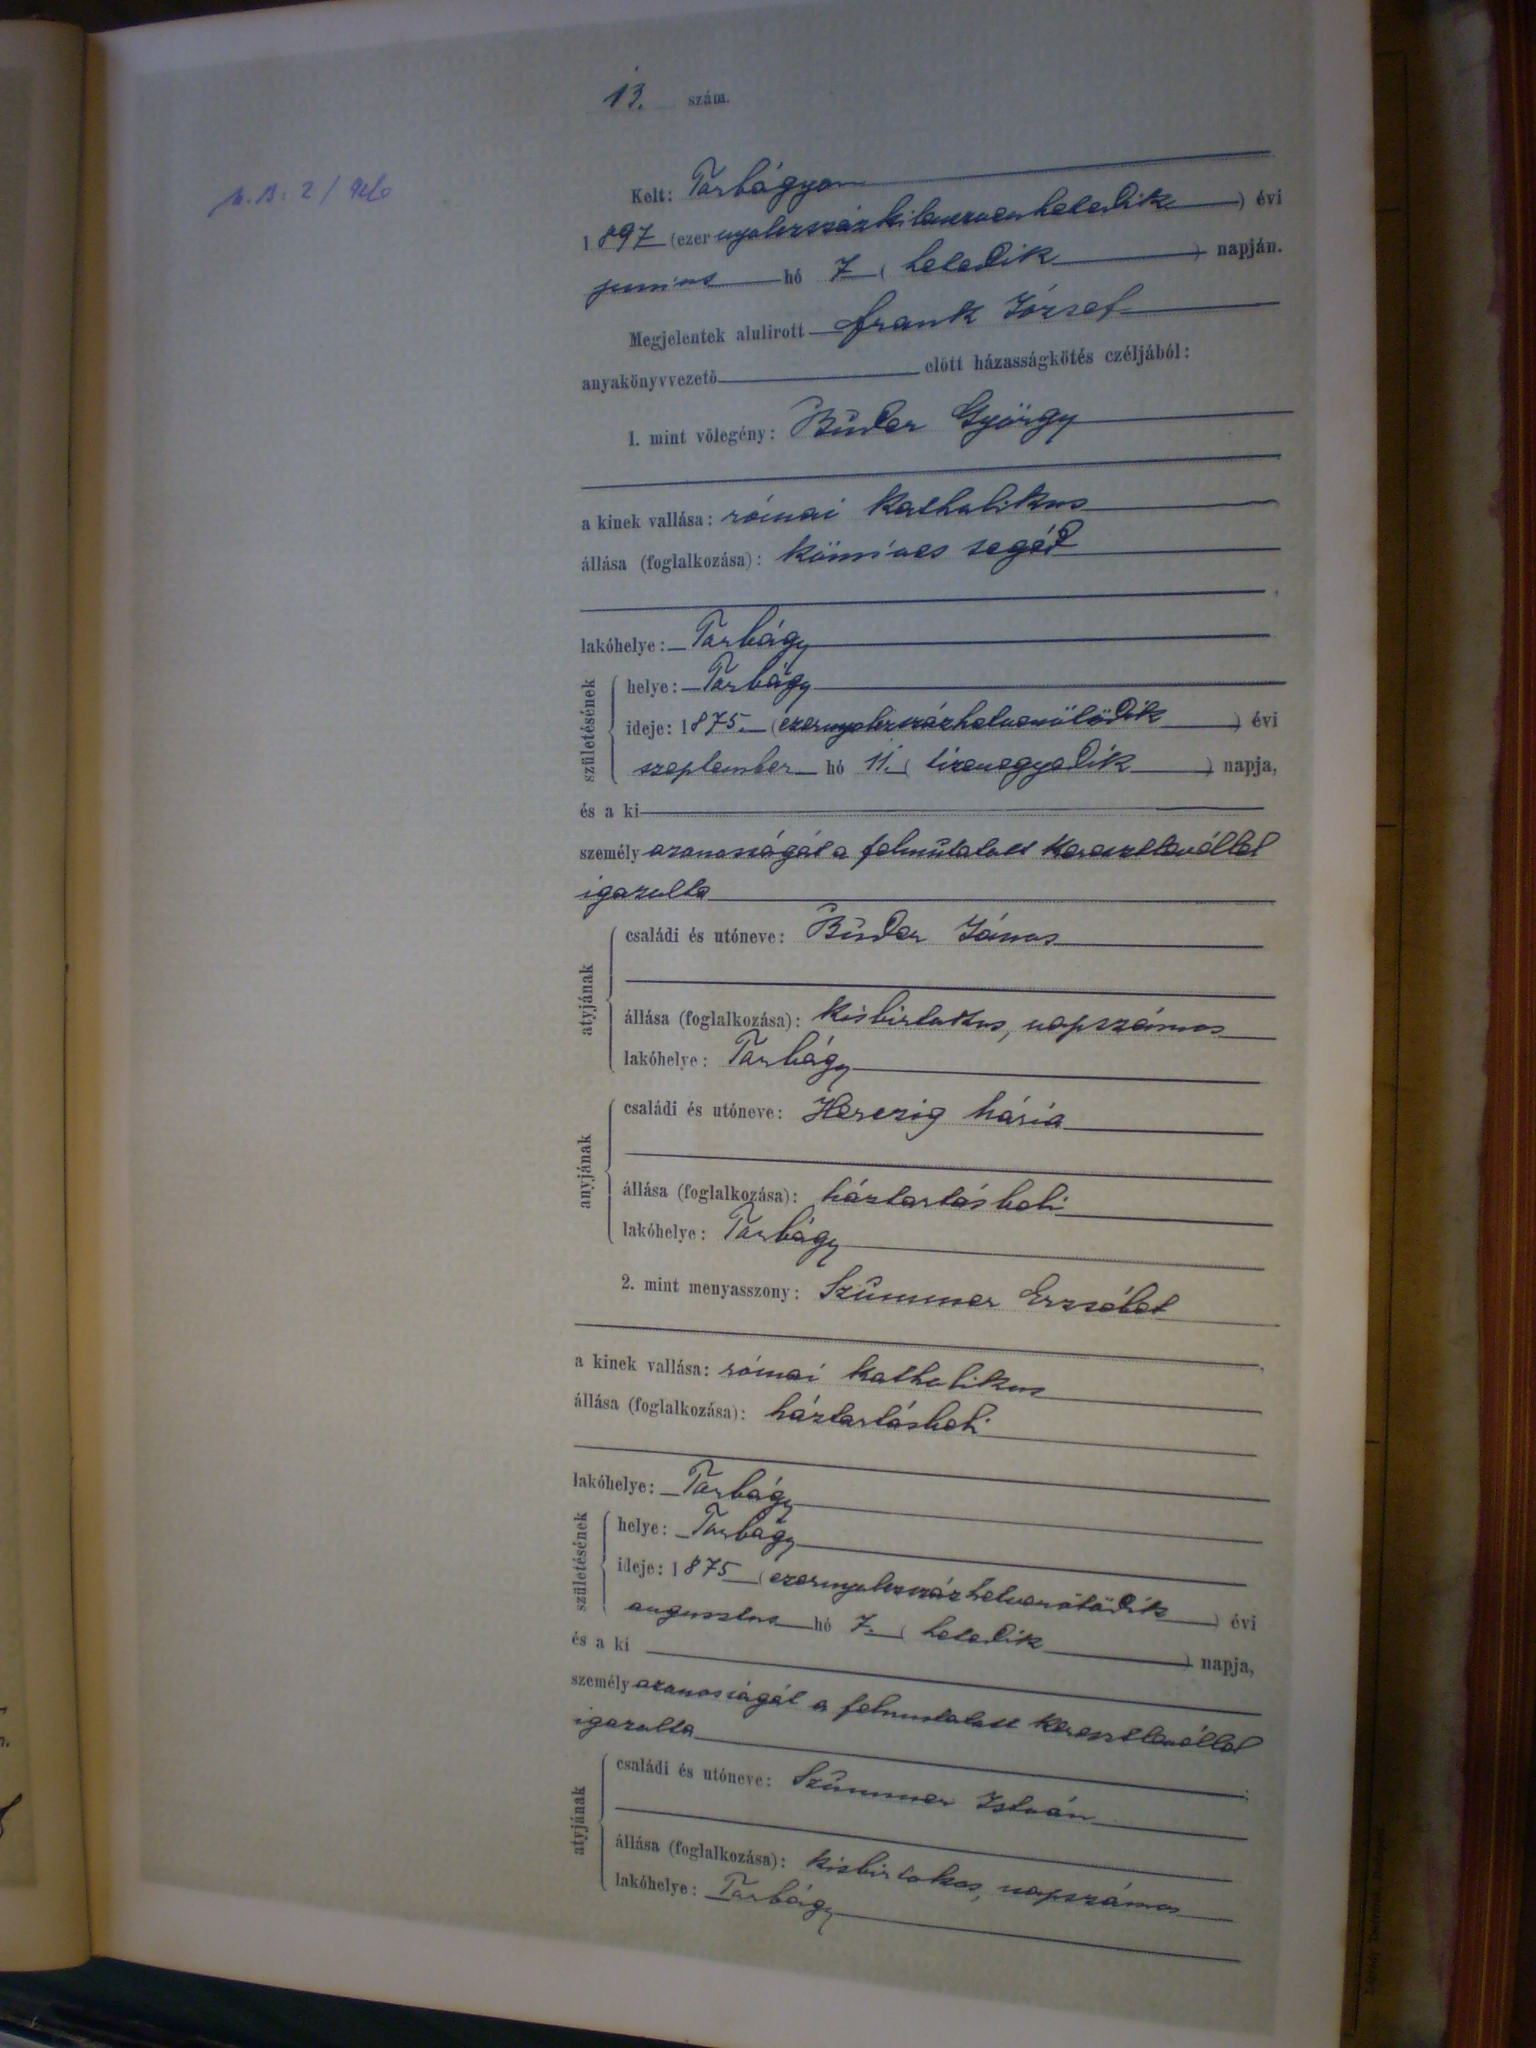 13. szám.
Kelt: Torbágyon
1897 (ezernyolczszázkilenczvenhetedik) évi
junius hó 7 (hetedik) napján.
Megjelentek alulirott Frank József
anyakönyvvezető előtt házasságkötés czéljából:
1. mint vőlegény: Buder György
a kinek vallása: római katholikus
állása (foglalkozása): kőmíves segéd
lakóhelye: Torbágy
születésének
helye: Torbágy
ideje: 1875. (ezernyolczszázhetvenötödik) évi
szeptember hó 11. (tizenegyedik) napja,
és a ki
személyazonosságát a felmutatott keresztlevéllel
igazolta
atyjának
családi és utóneve: Buder János
állása (foglalkozása): kisbirtokos, napszámos
lakóhelye: Torbágy
anyjának
családi és utóneve: Herczig Mária
állása (foglalkozása): háztartásbeli
lakóhelye: Torbágy
2. mint menyasszony: Szummer Erzsébet
a kinek vallása: római katholikus
állása (foglalkozása): háztartásbeli
lakóhelye: Torbágy
születésének
helye: Torbágy
ideje: 1875 (ezernyolczszázhetvenötödik) évi
augusztus hó 7. (hetedik) napja,
és a ki
személyazonosságát a felmutatott keresztlevéllel
igazolta
atyjának
családi és utóneve: Szummer István
állása (foglalkozása): kisbirtokos, napszámos
lakóhelye: Torbágy